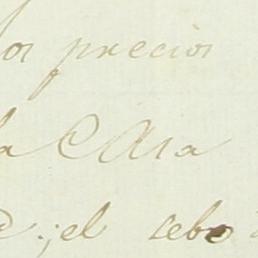 os precios
la Casa
el sebo